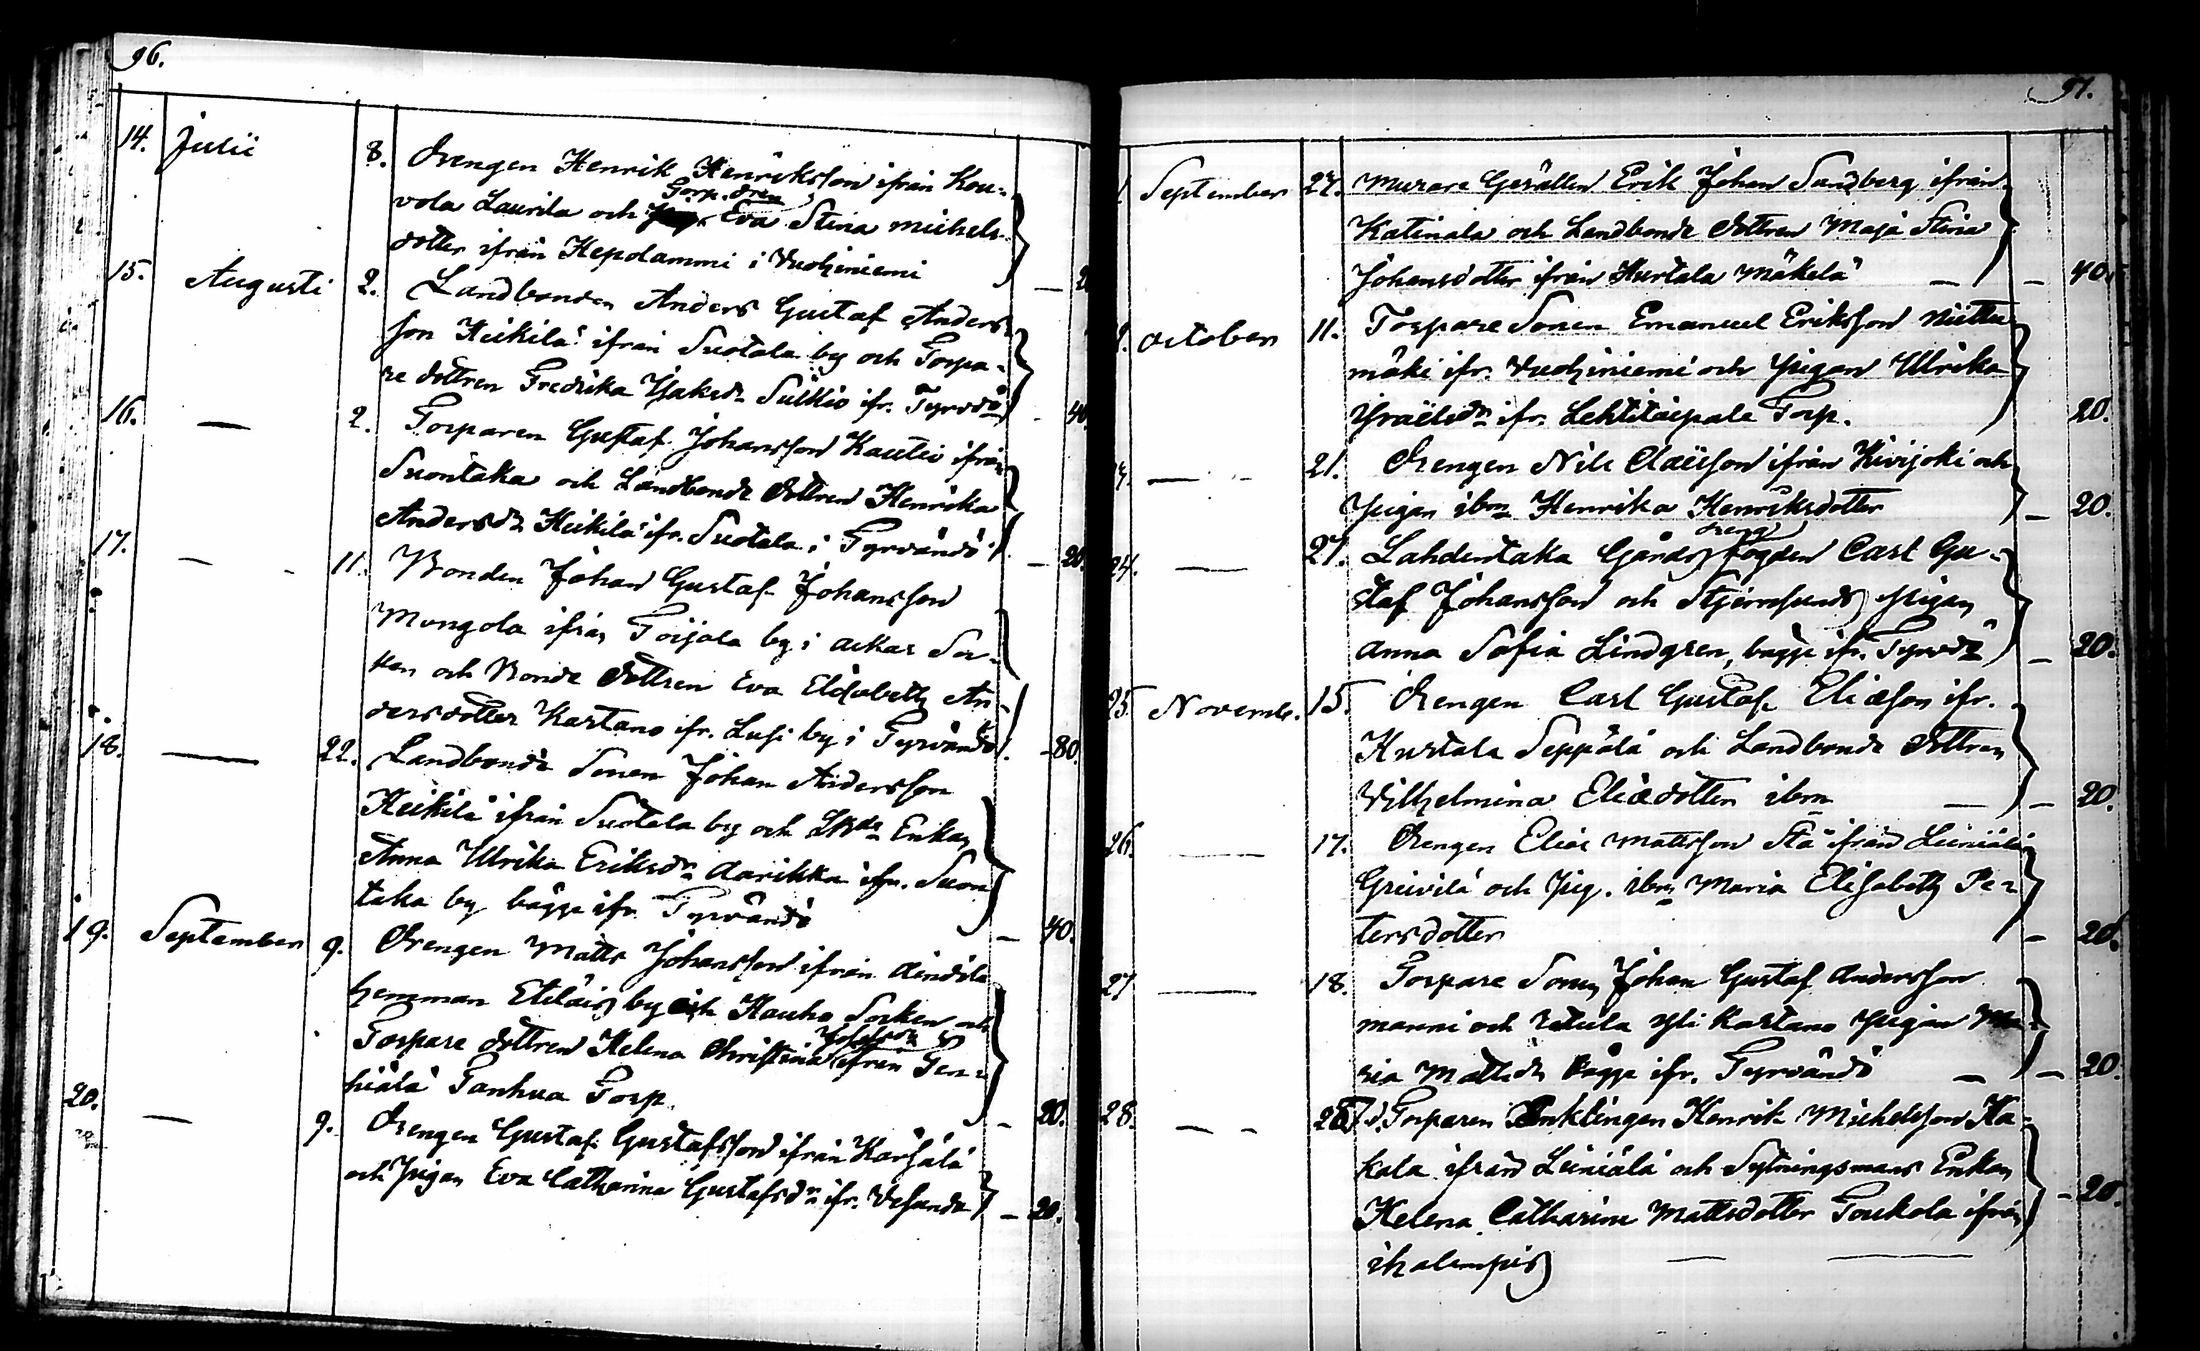 96.
14. Julii 8. Drengen Henrik Henriksson ifrån Kou-
Torp. dren
vola Laurila och Eva Stina Michels-
dotter ifrån Hepolammi i Vuohiniemi
15. Augusti 2. Landbonden Anders Gustaf Anders-
son Heikilä ifrån Suotala by och Torpa-
re dottren Fredrika Isaksdr ifr. Tyrvdö — 40
16. — 2. Torparen Gustaf Johansson Kautio ifrån
Suontaka och Landbonde Dottren Henrika
Andersdr Heikilä ifr. Suotala i Tyrvändö — 20.
17. — 11. Bonden Johan Gustaf Johansson
Mongola ifrån Toijala by i Ackas Soc-
ken och Bonde Dottren Eva Elisabeth An-
dersdotter Kartano ifr. Lusi by i Tyrvändö. - 80.
18. — 22. Landbonde Sonen Johan Andersson
Heikilä ifrån Suotala by och Enkan
Anna Ulrika Eriksdr Aarikka ifr. Suon
taka by bägge ifr. Tyrvändö — 40.
19. September 9. Drengen Matts Johansson ifrån
hemman by Hauho Socken och
Torpare dottren Helena Christina ifrån Ten-
hiälä Tanhua Torp. — 20.
20. — 9. Drengen Gustaf Gustafsson ifrån Karsälä
och Pigan Eva Catharina Gustafsdr ifr. Vesunda — 20.
97.
September 27. Murare Gesällen Erik Johan Sundberg ifrån
Katinala och Landbonde Dottren Maja Stina
Johansdotter ifrån Hurtala Mäkelä — — 40.
October 11. Torpare Sonen Emanuel Eriksson Niittu-
mäki ifr. Vuohiniemi och Pigan Ulrika
Israelsdr ifr. Torp. 20.
— 21. Drengen Nils Claësson ifrån Kivijoki och
Pigan ibm Henrika Henriksdotter — 20.
dreng
24. — 27. Lahdentaka Gårds fogden Carl Gu-
staf Johansson och Stjernsunds Pigan
Anna Sofia Lindgren, bägge ifr. Tyrvdö — 20.
25. Novemb. 15. Drengen Carl Gustaf Eliasson ifr.
Hurtala Seppälä och Landbonde Dottren
Vilhelmina Eliædotter ibm — — 20.
26. — 17. Drengen Elias Mattsson ifrån Leiniälä
och Pig. ibm Maria Elisabeth Pe-
tersdotter — 20.
27 — 18. Torpare Sonen Johan Gustaf Andersson
Manni och Retula Yli Kartano Pigan Ma-
ria Mattsdr bägge ifr. Tyrvändö — — 20.
28. — 28 d. Torparen Enklingen Henrik Michelsson Ha-
kala ifrån Leiniälä och Sytningsmans Enkan
Helena Catharina Mattsdotter Toukola ifrån - 20.
Ihalempis — —